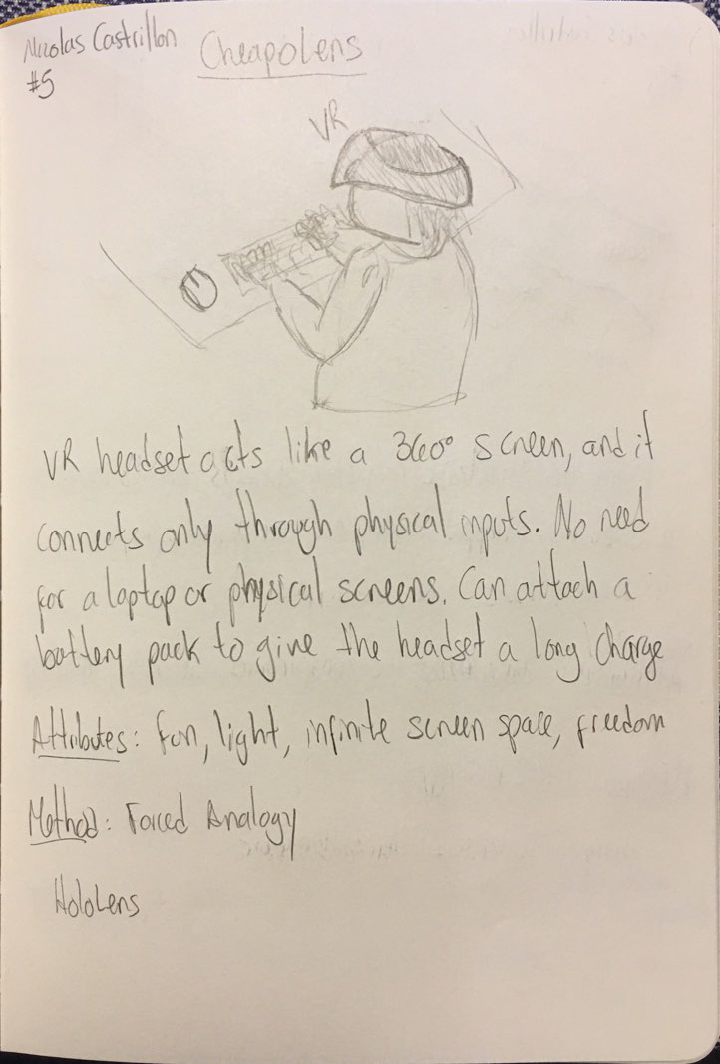 Nicolas Castrillon
#5
Cheapolens
VR
VR headset acts like a 360° screen, and it
connects only through physical inputs. No need
for a laptop or physical screens. Can attach a
battery pack to give the headset a long charge
Attributes: fun, light, infinite screen space, freedom
Method: Forced Analogy
HoloLens